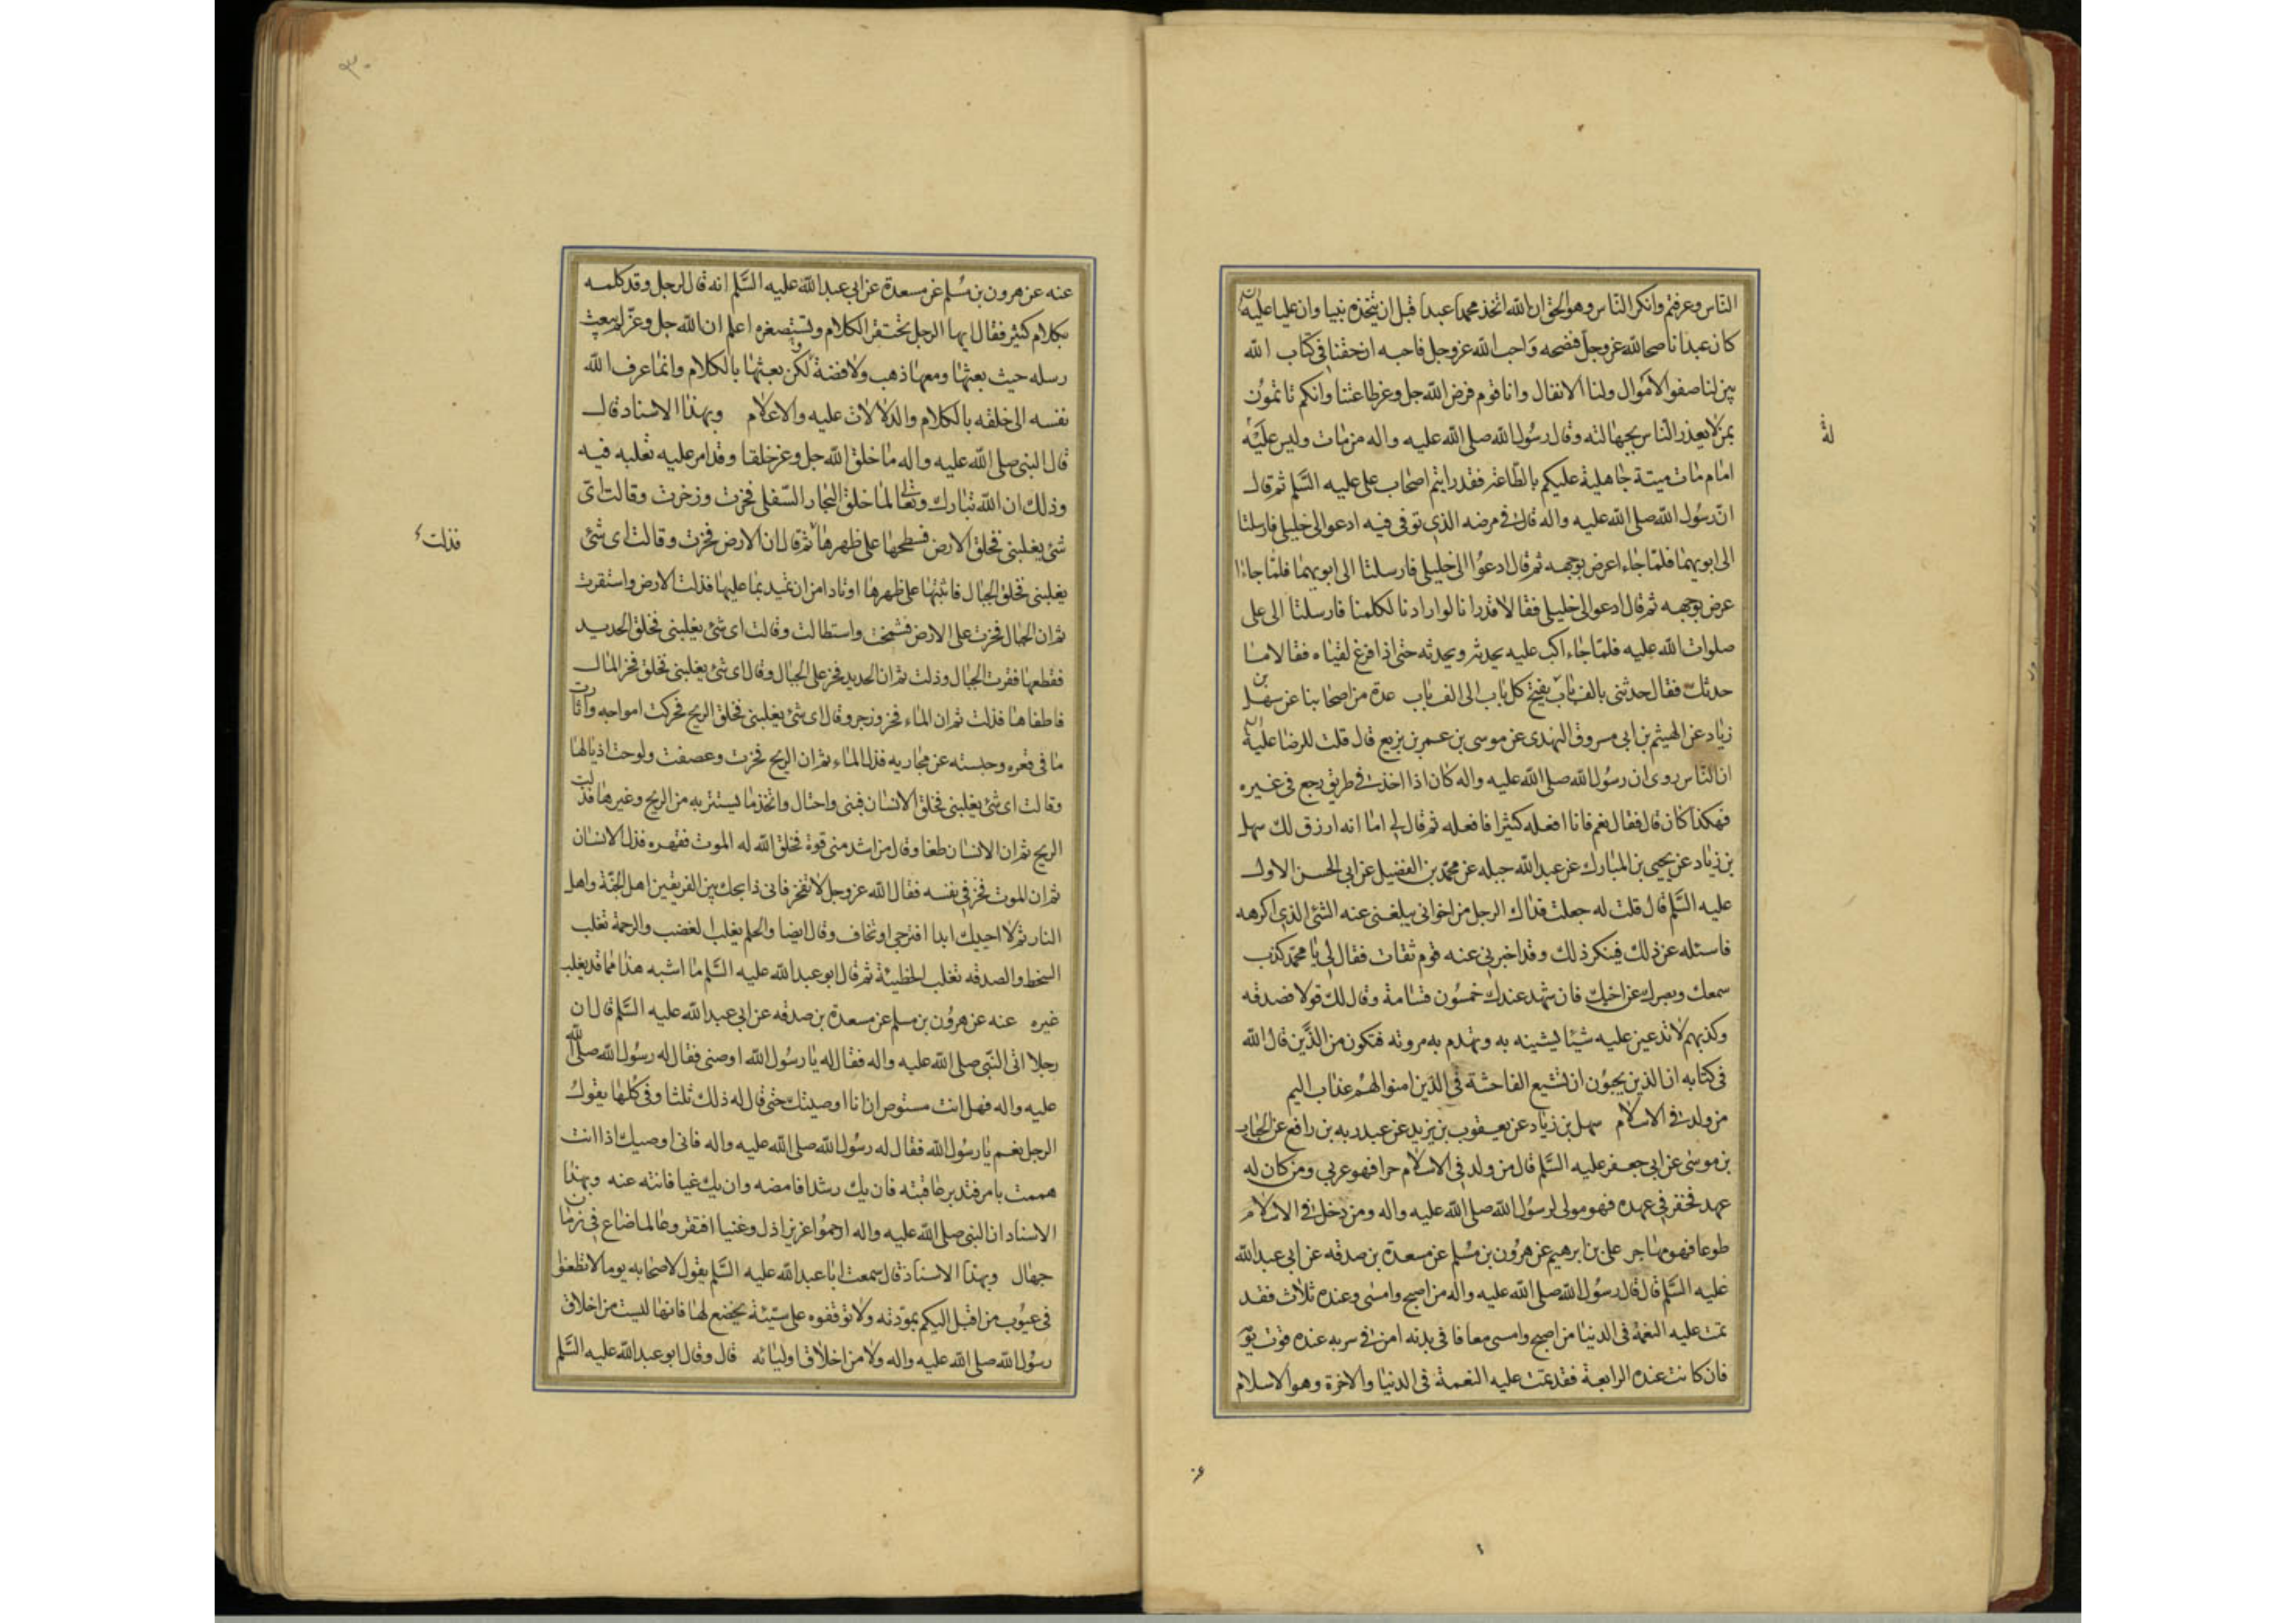 الناس وعرفتم وانكر الناس وهو الحق ان الله اتخذ محمدا عبدا قبل ان يتخذه نبيا وان عليا عليه السلم
كان عبدا ناصحا لله عز وجل فنصحه واحب الله عز وجل فاحبه ان حقنا في كتاب الله
بين لنا صفو الاموال ولنا الانفال وانا قوم فرض الله جل وعز طاعتنا وانكم تاتمون
بمن لا يعذر الناس بجهالته وقال رسول الله صلى الله عليه واله من مات وليس عليه
امام مات ميتة جاهلية عليكم بالطاعة فقد رايتم اصحاب على عليه السلم ثم قال
ان رسول الله صلى الله عليه واله قال في مرضه الذي توفى فيه ادعوا لي خليلي فارسلتا
الى ابويهما فلما جاءا اعرض بوجهه ثم قال ادعوا الى خليلي فارسلتا الى ابويهما فلما جاءا
عرض بوجهه ثم قال ادعوا لي خليلي فقالا قد رانا لو ارادنا لكلمنا فارسلتا الى على
صلوات الله عليه فلما جاء اكب عليه يحدثه ويحدثه حتى اذا فرغ لقياه فقالا ما
حدثك فقال حدثني بالف باب يفتح كل باب الى الف باب عدة من اصحابنا عن سهل بن
زياد عن الهيثم بن ابي مسروق النهدى عن موسى بن عمر بن بزيع قال قلت للرضا عليه السلم
ان الناس روى ان رسول الله صلى الله عليه واله كان اذا اخذ في طريق رجع في غيره
فهكذا كان قال فقال نعم فانا افعله كثيرا فافعله ثم قال لي اما انه ارزق لك سهل
بن زياد عن يحيى بن المبارك عن عبد الله جبله عن محمد بن الفضيل عن ابي الحسن الاول
عليه السلم قال قلت له جعلت فداك الرجل من اخواني يبلغني عنه الشئ الذي اكرهه
فاسئله عن ذلك فينكر ذلك وقد اخبرني عنه قوم ثقات فقال لي يا محمد كذب
سمعك وبصرك عن اخيك فان شهد عندك خمسون قسامة وقال لك قولا فصدقه
وكذبهم لا تذعين عليه شيئا يشينه به وتهدم به مروته فتكون من الذين قال الله
في كتابه ان الذين يحبون ان تشيع الفاحشة في الذين امنوا لهم عذاب اليم
من ولد في الاسلام سهل بن زياد عن يعقوب بن يزيد عن عبد ربه بن رافع عن الحباب
بن موسى عن ابي جعفر عليه السلم قال من ولد في الاسلام حرا فهو عربي ومن كان له
عهد فخفر في عهده فهو مولى لرسول الله صلى الله عليه واله ومن دخل في الاسلام
طوعا فهو مهاجر على بن ابرهيم عن هرون بن مسلم عن مسعدة بن صدقه عن ابي عبد الله
عليه السلم قال قال رسول الله صلى الله عليه واله من اصبح وامسى وعنده ثلاث فقد
تمت عليه النعمة في الدنيا من اصبح وامسى معافا في بدنه امن في سربه عنده قوت يومه
فان كانت عنده الرابعة فقد تمت عليه النعمة في الدنيا والاخرة وهو الاسلام
لة
عن
٣٠
عنه عن هرون بن مسلم عن مسعدة عن ابي عبد الله عليه السلم انه قال لرجل وقد كلمه
بكلام كثير فقال ايها الرجل تحتقر الكلام وتستصغره اعلم ان الله جل وعز لم يبعث
رسله حيث بعثها ومعها ذهب ولا فضة ولكن بعثها بالكلام وانما عرف الله
نفسه الى خلقه بالكلام والدلالات عليه والاعلام وبهذا الاسناد قال
قال النبي صلى الله عليه واله ما خلق الله جل وعز خلقا وقد امر عليه تغلبه فيه
وذلك ان الله تبارك وتعالى لما خلق البحار السفلى فخرت وزخرت وقالت اى
شئ يغلبني فخلق الارض فسطحها على ظهرها ثم قال ان الارض فخرت وقالت اى شئ
يغلبني فخلق الجبال فاثبتها على ظهرها اوتادا من ان تميد بما عليها فذلت الارض واستقرت
ثم ان الجبال فخرت على الارض فشمخت واستطالت وقالت اى شئ يغلبني فخلق الحديد
فقطعها فقرت الجبال وذلت ثم ان الحديد فخر على الجبال وقال اى شئ يغلبني فخلق فخر المال
فاطفاها فذلت ثم ان الماء فخر وزجر وقال اى شئ يغلبني فخلق الريح فحركت امواجه واثارت
ما في قعره وحبسته عن مجاريه فذل الماء ثم ان الريح فخرت وعصفت ولوحت اذيالها
وقالت اى شئ يغلبني فخلق الانسان فبنى واحتال واتخذ ما يستتر به من الريح وغيرها فذلت
الريح ثم ان الانسان طغا وقال من اشد مني قوة فخلق الله له الموت فقهره فذل الانسان
ثم ان الموت فخر في نفسه فقال الله عز وجل لا تفخر فاني ذابحك بين الفريقين اهل الجنة واهل
النار ثم لا احييك ابدا افترجى او تخاف وقال ايضا والحلم يغلب الغضب والرحمة تغلب
السخط والصدقه تغلب الخطيئة ثم قال ابو عبد الله عليه السلم ما اشبه هذا مما قد يغلب
غيره عنه عن هرون بن مسلم عن مسعدة بن صدقه عن ابي عبد الله عليه السلم قال ان
رجلا اتى النبي صلى الله عليه واله فقال له يا رسول الله اوصنى فقال له رسول الله صلى الله
عليه واله فهل انت مستوص ان انا اوصيتك حتى قال له ذلك ثلثا وفي كلها يقول
الرجل نعم يا رسول الله فقال له رسول الله صلى الله عليه واله فاني اوصيك اذا انت
هممت بامر فتدبر عاقبته فان يك رشدا فامضه وان يك غيا فانته عنه وبهذا
الاسناد ان النبي صلى الله عليه واله ارحموا عزيزا ذل وغنيا افتقر وعالما ضاع في زمان
جهال وبهذا الاسناد قال سمعت ابا عبد الله عليه السلم يقول لاصحابه يوما لا تطعنوا
في عيوب من اقبل اليكم بمودته ولا توقفوه على سيئة يخضع لها فانها ليست من اخلاق
رسول الله صلى الله عليه واله ولا من اخلاق اوليائه قال وقال ابو عبد الله عليه السلم
فذلت